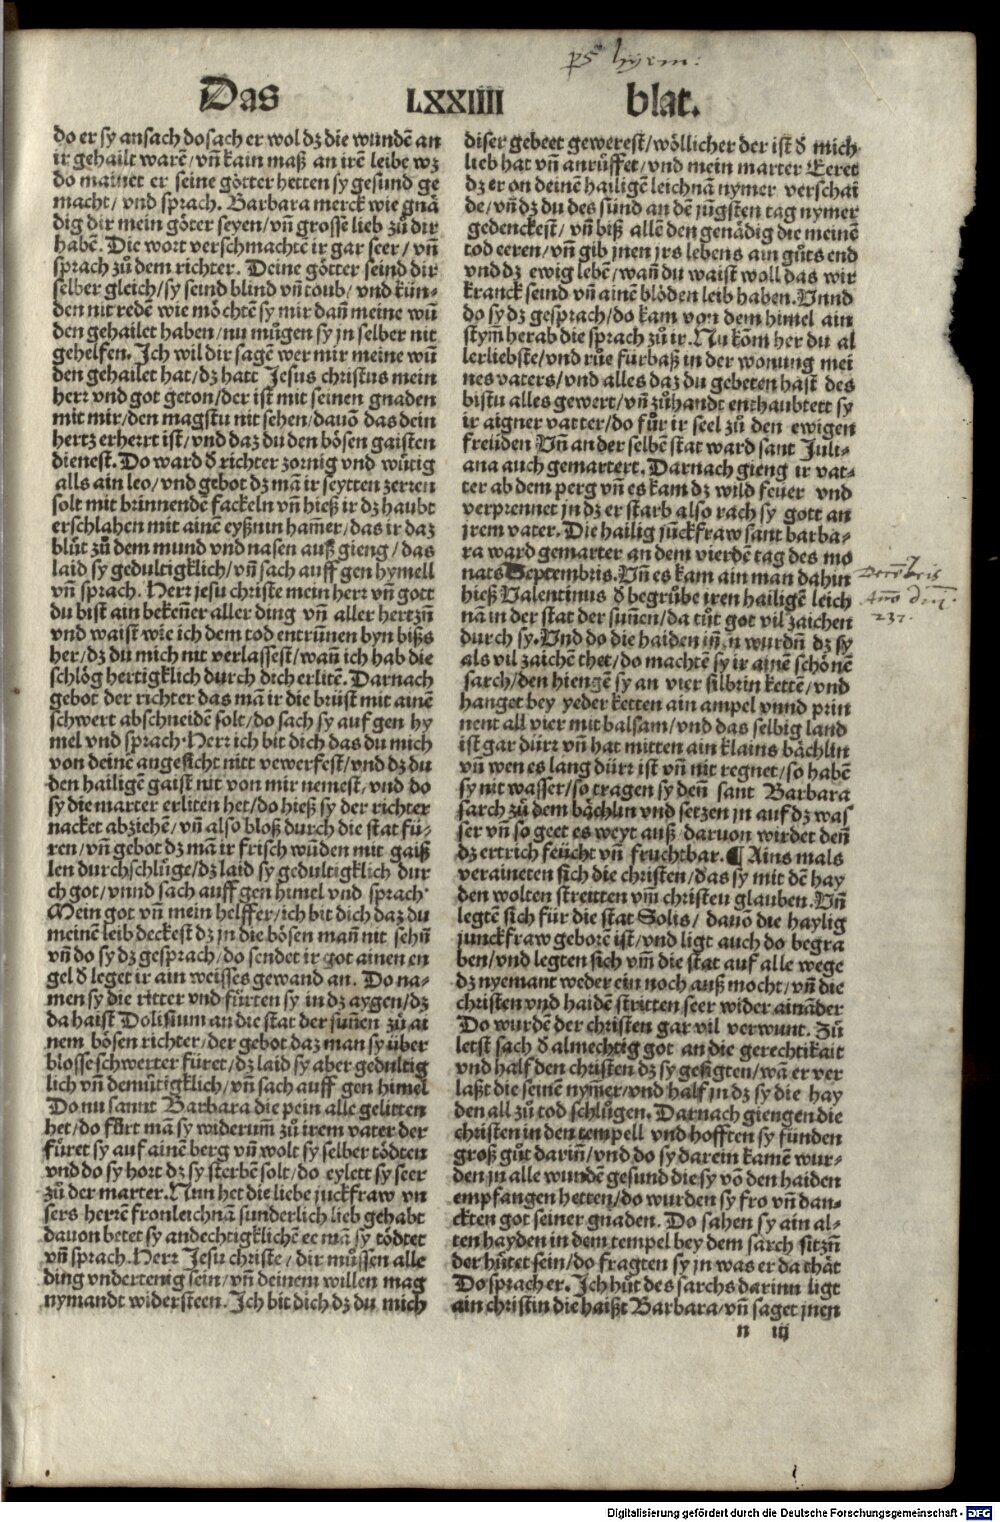 ps hyem:
Das LXXIIII blat.
do er sy ansach do sach er wol dz die wundē an
ir gehailt warē/ vñ kain maß an irē leibe wz
do mainet er seine götter hetten sy gesund ge
macht/ vnd sprach. Barbara merck wie gnä
dig dir mein göter seyen/ vñ grosse lieb zů dir
habē. Die wort verschmachtē ir gar seer/ vñ
sprach zů dem richter. Deine götter seind dir
selber gleich/ sy seind blind vñ toub/ vnd kün⸗
den nit redē wie möchtē sy mir dañ meine wũ
den gehailet haben/ nu mügen sy jn selber nit
gehelfen. Ich wil dir sagē wer mir meine wũ
den gehailet hat/ dz hatt Jesus christus mein
herr vnd got geton/ der ist mit seinen gnaden
mit mir/ den magstu nit sehen/ dauō das dein
hertz erherrt ist/ vnd daz du den bösen gaisten
dienest. Do ward d̕ richter zornig vnd wütig
alls ain leo/ vnd gebot dz mā ir seytten zerren
solt mit brinnendē fackeln vñ hieß ir dz haubt
erschlahen mit ainē eyßnin ham̄er/ das ir daz
blůt zů dem mund vnd nasen auß gieng/ das
laid sy gedultigklich/ vñ sach auff gen hymell
vñ sprach. Herr jesu christe mein herr vñ gott
du bist ain bekeñer aller ding vñ aller hertzñ
vnd waist wie ich dem tod entrunen byn bißs
her/ dz du mich nit verlassest/ wañ ich hab die
schlög hertigklich durch dich erlitē. Darnach
gebot der richter das mā ir die brüst mit ainē
schwert abschneidē solt/ do sach sy auf gen hy
mel vnd sprach. Herr ich bit dich das du mich
von deinē angesicht nitt vewerfest/ vnd dz du
den hailigē gaist nit von mir nemest/ vnd do
sy die marter erliten het/ do hieß sy der richter
nacket abziehē/ vñ also bloß durch die stat fü⸗
ren/ vñ gebot dz mā ir frisch wũden mit gaiß
len durchschlüge/ dz laid sy gedultigklich dur
ch got/ vnnd sach auff gen himel vnd sprach
Mein got vñ mein helffer/ ich bit dich daz du
meinē leib deckest dz jn die bösen mañ nit sehñ
vñ do sy dz gesprach/ do sendet ir got ainen en
gel d̕ leget ir ain weisses gewand an. Do na⸗
men sy die ritter vnd fürten sy in dz aygen/ dz
da haist Dolisium an die stat der suñen zů ai
nem bösen richter/ der gebot daz man sy über
blosse schwerter füret/ dz laid sy aber gedultig
lich vñ demütigklich/ vñ sach auff gen himel
Do nu sannt Barbara die pein alle gelitten
het/ do fürt mā sy widerum̄ zů irem vater der
füret sy auf ainē berg vñ wolt sy selber tödten
vnd do sy hort dz sy sterbē solt/ do eylett sy seer
zů der marter. Nun het die liebe juckfraw vn
sers herrē fronleichnā sunderlich lieb gehabt
dauon betet sy andechtigklichē ee mā sy tödtet
vñ sprach. Herr Jesu christe/ dir müssen alle
ding vndertenig sein/ vñ deinem willen mag
nymandt widersteen. Ich bit dich dz du mich
diser gebeet gewerest/ wöllicher der ist d̕ mich
lieb hat vñ anrůffet/ vnd mein marter Eeret
dz er on deinē hailigē leichnā nymer verschai
de/ vñ dz du des sünd an dē jũgsten tag nymer
gedenckest/ vñ biß allē den genädig die meinē
tod eeren/ vñ gib jnen jrs lebens ain gůts end
vnd dz ewig lebē/ wañ du waist woll das wir
kranck seind vñ ainē blöden leib haben. Vnnd
do sy dz gesprach/ do kam von dem himel ain
stym̄ herab die sprach zů ir. Nu kōm her du al
lerliebste/ vnd růe fürbaß in der wonung mei
nes vaters/ vnd alles daz du gebeten hast des
bistu alles gewert/ vñ zůhandt enthaubtett sy
ir aigner vatter/ do fůr ir seel zů den ewigen
freüden Vñ an der selbē stat ward sant Juli⸗
ana auch gemartert. Darnach gieng ir vat⸗
ter ab dem perg vñ es kam dz wild feuer vnd
verprennet jn dz er starb also rach sy gott an
jrem vater. Die hailig jũckfraw sant barba⸗
ra ward gemarter an dem vierdē tag des mo
nats Septembris. Vñ es kam ain man dahin
hieß Valentinus d̕ begrůbe jren hailigē leich
nā in der stat der suñen/ da tůt got vil zaichen
durch sy. Vnd do die haiden iñen wurdñ dz sy
als vil zaichē thet/ do machtē sy ir ainē schönē
sarch/ den hiengē sy an vier silbrin kettē/ vnd
hanget bey yeder ketten ain ampel vnnd prin
nent all vier mit balsam/ vnd das selbig land
ist gar dürr vñ hat mitten ain klains bächlin
vñ wen es lang dürr ist vñ nit regnet/ so habē
sy nit wasser/ so tragen sy deñ sant Barbara
sarch zů dem bächlin vnd setzen jn auf dz was
ser vñ so geet es weyt auß daruon wirdet deñ
dz ertrich feücht vñ fruchtbar. ¶ Ains mals
veraineten sich die christen/ das sy mit dē hay
den wolten streitten vm̄ christen glauben. Vñ
legtē sich für die stat Solis/ dauō die haylig
junckfraw geborē ist/ vnd ligt auch do begra
ben/ vnd legten sich vm̄ die stat auf alle wege
dz nyemant weder ein noch auß mocht/ vñ die
christen vnd haidē stritten seer wider ainäder
Do wurdē der christen gar vil verwunt. Zů
letst sach d̕ almechtig got an die gerechtikait
vnd half den christen dz sy gesigten/ wā er ver
laßt die seinen nym̄er/ vnd half jn dz sy die hay
den all zů tod schlůgen. Darnach giengen die
christen in den tempell vnd hofften sy fünden
groß gůt dariñ/ vnd do sy darein kamē wur⸗
den jn alle wundē gesund die sy vō den haiden
empfangen hetten/ do wurden sy fro vñ dan⸗
ckten got seiner gnaden. Do sahen sy ain al⸗
ten hayden in dem tempel bey dem sarch sitzñ
der hütet sein/ do fragten sy jn was er da thät
Do sprach er. Ich hüt des sarchs darinn ligt
ain christin die haißt Barbara/ vñ saget jnen
n iij
Decēbris
Año dñi.
237.
Digitalisierung gefördert durch die Deutsche Forschungsgemeinschaft - DFG